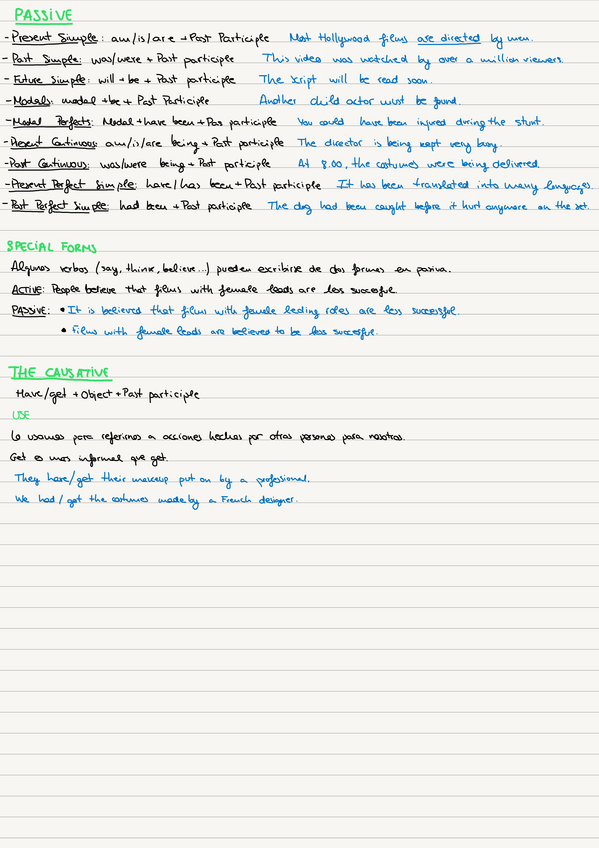 PASSIVE
- Present Simple: am/is/are + Past Participle Most Hollywood films are directed by men.
- Past Simple: was/were + Past participle This video was watched by over a million viewers.
- Future Simple: will + be + Past participle The script will be read soon.
- Modals: modal + be + Past Participle Another child actor must be found.
- Modal Perfects: Modal + have been + Pas participle You could have been injured during the stunt.
- Present Continuous: am/is/are being + Past participle The director is being kept very busy.
- Past Continuous: was/were being + Past participle At 8.00, the costumes were being delivered.
- Present Perfect Simple: have/has been + Past participle It has been translated into many languages.
- Past Perfect Simple: had been + Past participle The dog had been caught before it hurt anymore on the set.
SPECIAL FORMS
Algunos verbos (say, think, believe...) pueden escribirse de dos formas en pasiva.
ACTIVE: People believe that films with female leads are less succesful.
PASSIVE: • It is believed that films with female leading roles are less successful.
• Films with female leads are believed to be less succesful.
THE CAUSATIVE
Have/get + Object + Past participle
USE
Lo usamos para referirnos a acciones hechas por otras personas para nosotros.
Get es mas informal que get.
They have/get their makeup put on by a professional.
We had/got the costumes made by a French designer.